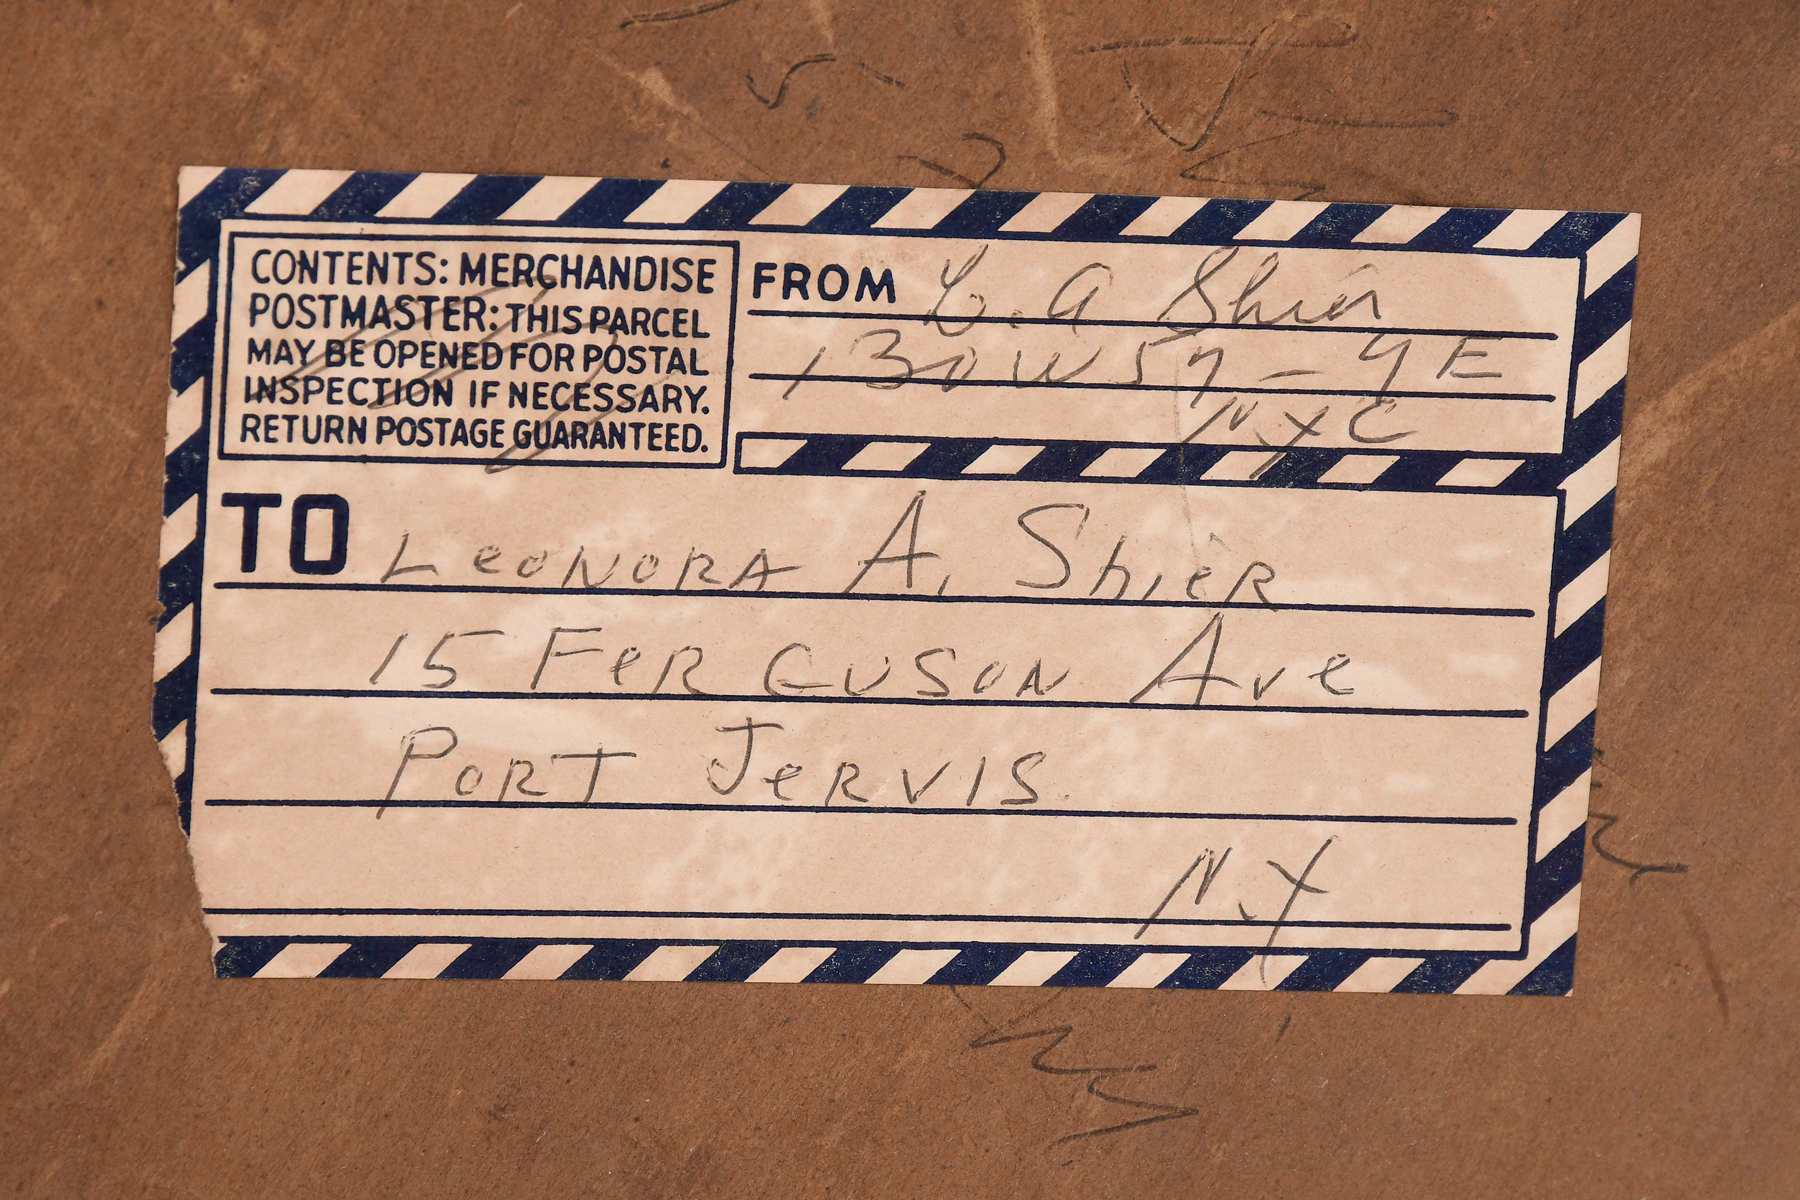 CONTENTS: MERCHANDISE
POSTMASTER: THIS PARCEL
MAY BE OPENED FOR POSTAL
INSPECTION IF NECESSARY.
RETURN POSTAGE GUARANTEED.
FROM L. A Shier
130 W 57 - 9E
NYC
TO LeoNORA A. ShieR
15 FeRGUSON Ave
PORT JeRVIS
N.Y